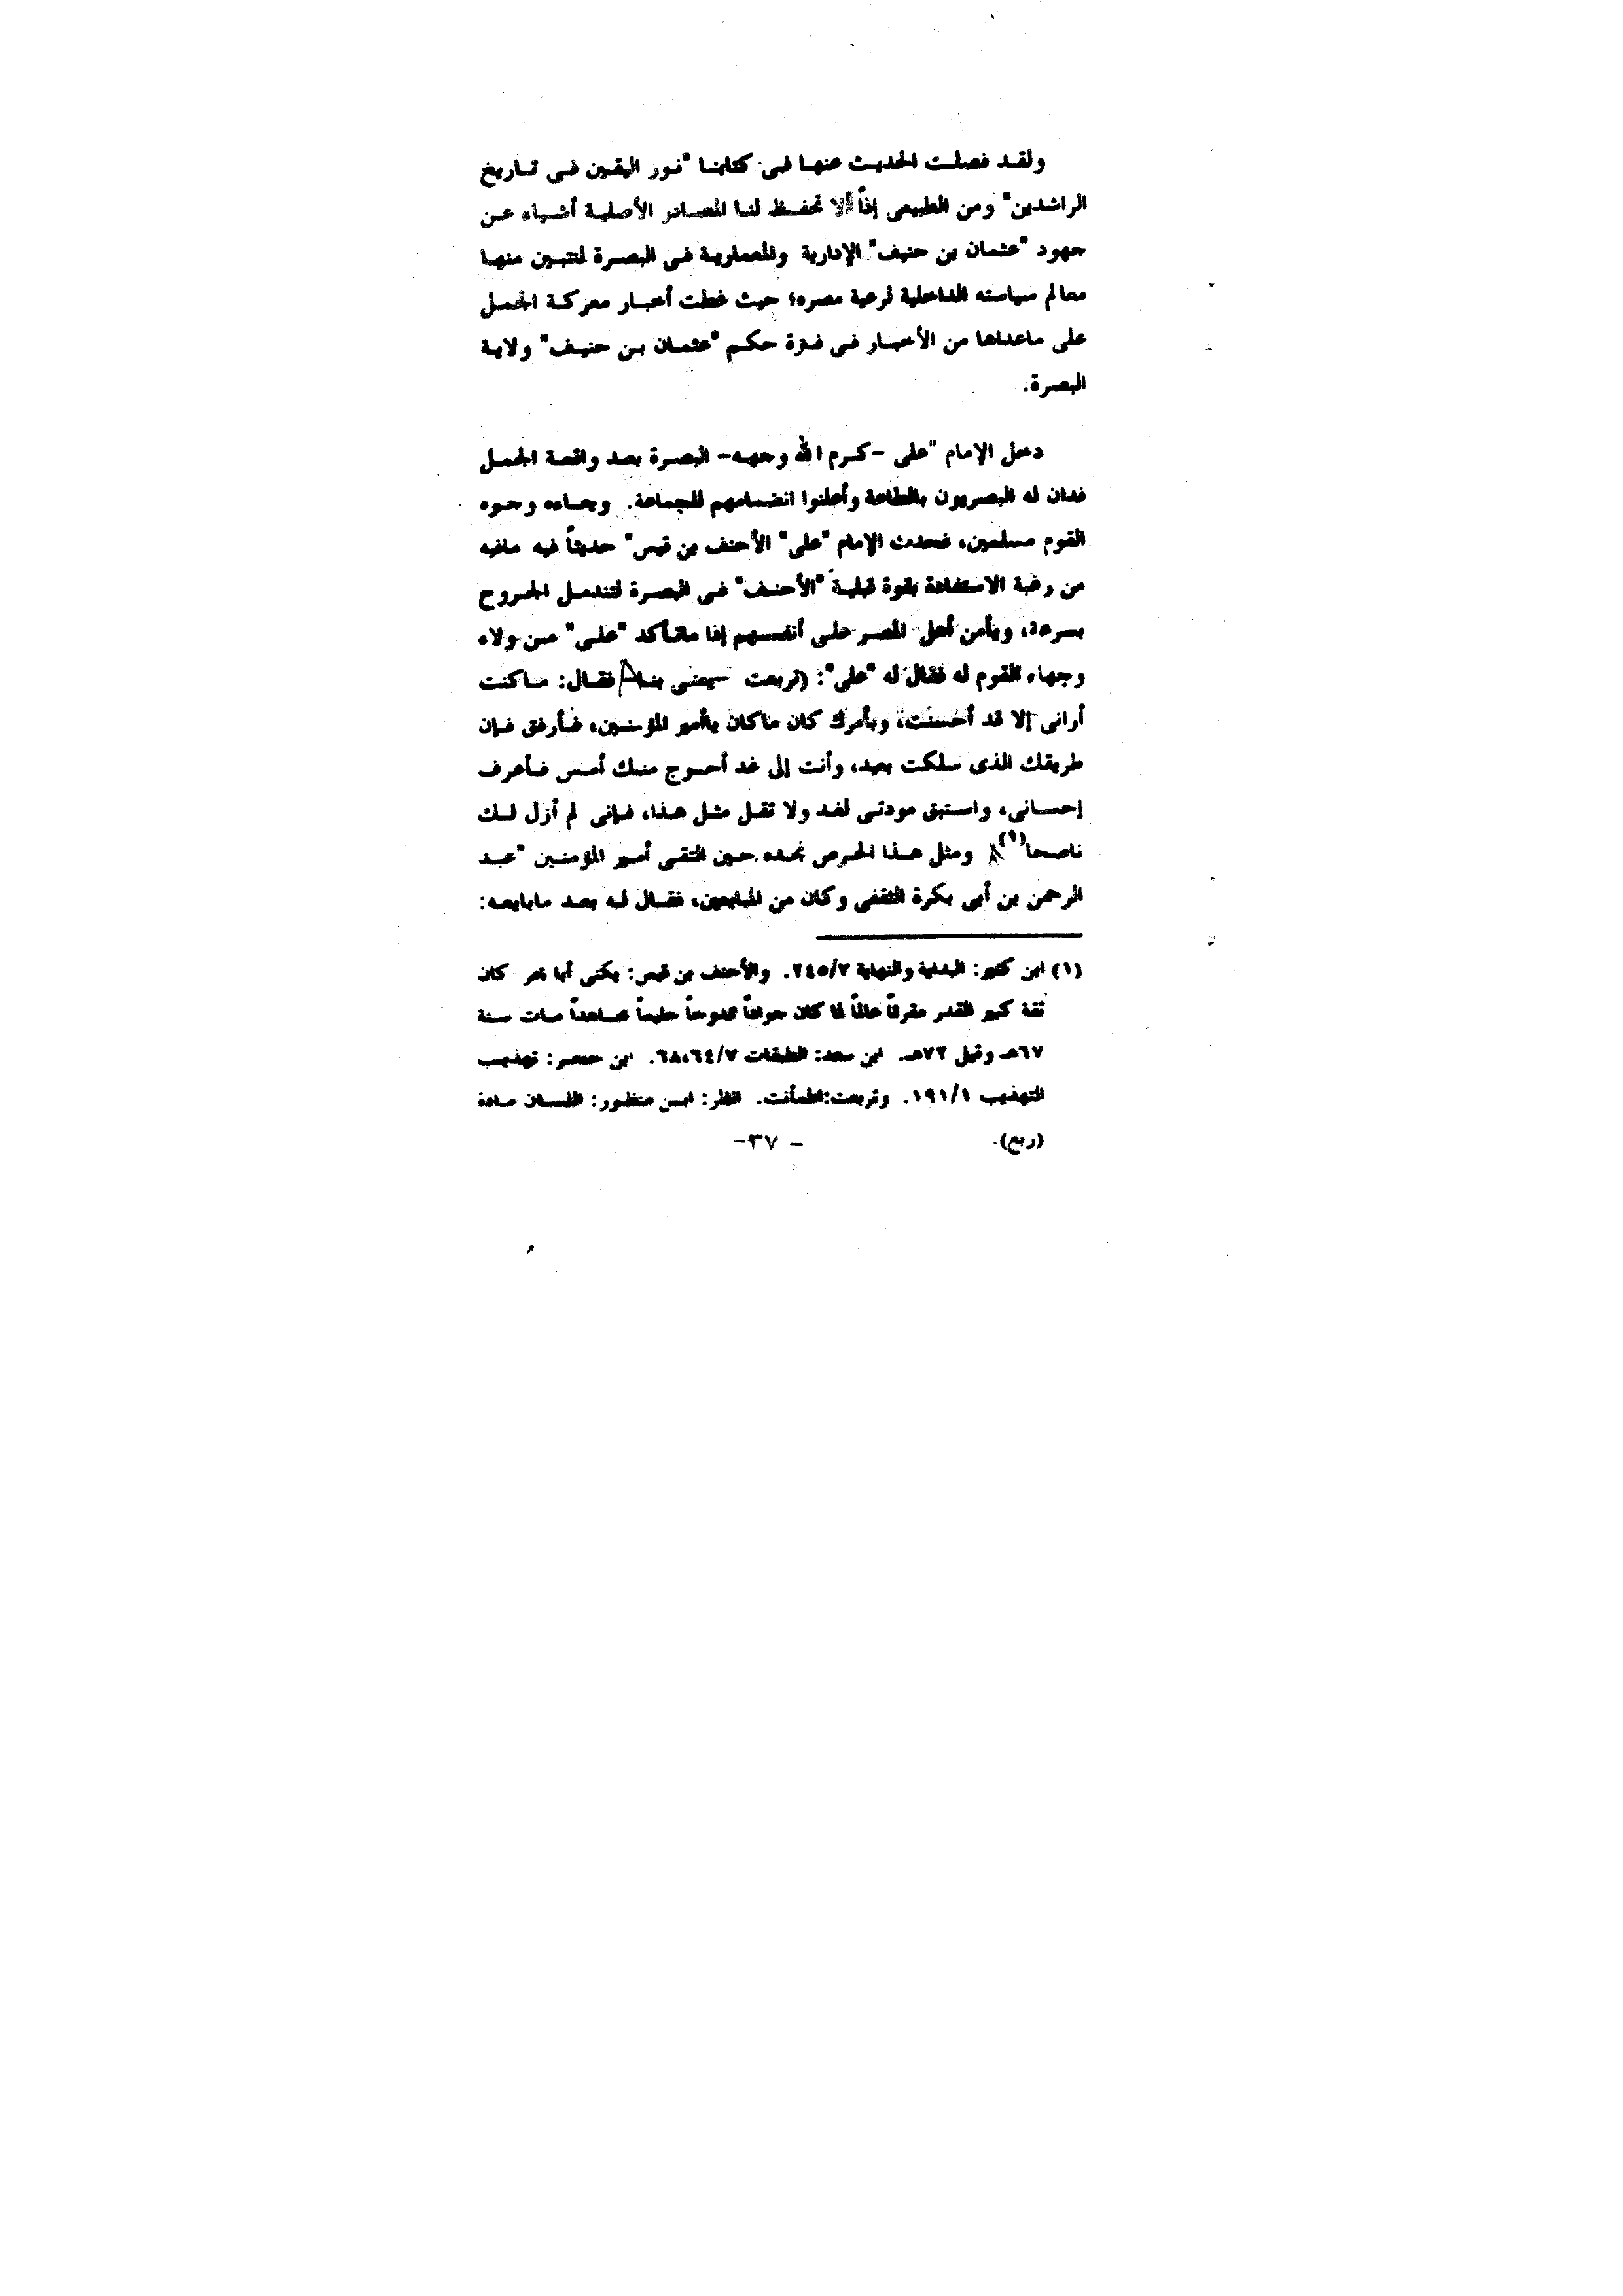 ولقد فصلت الحديث عنها فى كتابنا "نور اليقين فى تاريخ
الراشدين" ومن الطبيعى إذاً ألا تحفظ لنا المصادر الأصلية أشياء عن
جهود "عثمان بن حنيف" الإدارية والمعمارية فى البصرة لنتبين منها
معالم سياسته الداخلية لرعية مصره؛ حيث غطت أخبار معركة الجمل
على ماعداها من الأخبار فى فترة حكم "عثمان بن حنيف" ولاية
البصرة.
دخل الإمام "على -كرم الله وجهه- البصرة بعد واقعة الجمل
فدان له البصريون بالطاعة وأعلنوا انضمامهم للجماعة. وجاءه وجوه
القوم مسلمين، فحدث الإمام "على" الأحنف بن قيس" حديثاً فيه مافيه
من رغبة الاستفادة بقوة قبلية "الأحنف" فى البصرة لتندمل الجروح
بسرعة، ويأمن أهل المصر على أنفسهم إذا ماتأكد "على" من ولاء
وجهاء القوم له فقال له "على": (تربعت - يعنى بنا فقال: ماكنت
أرانى إلا قد أحسنت، وبأمرك كان ماكان ياأمير المؤمنين، فأرفق فإن
طريقك الذى سلكت بعيد، وأنت إلى غد أحوج منك أمس فأعرف
إحسانى، واستبق مودتى لغد ولا تقل مثل هذا، فإنى لم أزل لك
ناصحا(١) ومثل هذا الحرص نجده حين التقى أمير المؤمنين "عبد
الرحمن بن أبى بكرة الثقفى وكان من المبايعين، فقال له بعد مابايعه:
(١) ابن كثير: البداية والنهاية ٢٤٥/٧. والأحنف بن قيس: يكنى أبا بحر كان
ثقة كبير القدر مقرئاً عالماً كان جواداً ممدوحاً حليماً مجاهداً مات سنة
٦٧هـ وقيل ٧٢هـ. ابن سعد: الطبقات ٦٨،٦٤/٧. ابن حجر: تهذيب
التهذيب ١٩١/١. وتربعت:اطمأنت. انظر: ابن منظور: اللسان مادة
(ربع).
- ٣٧-